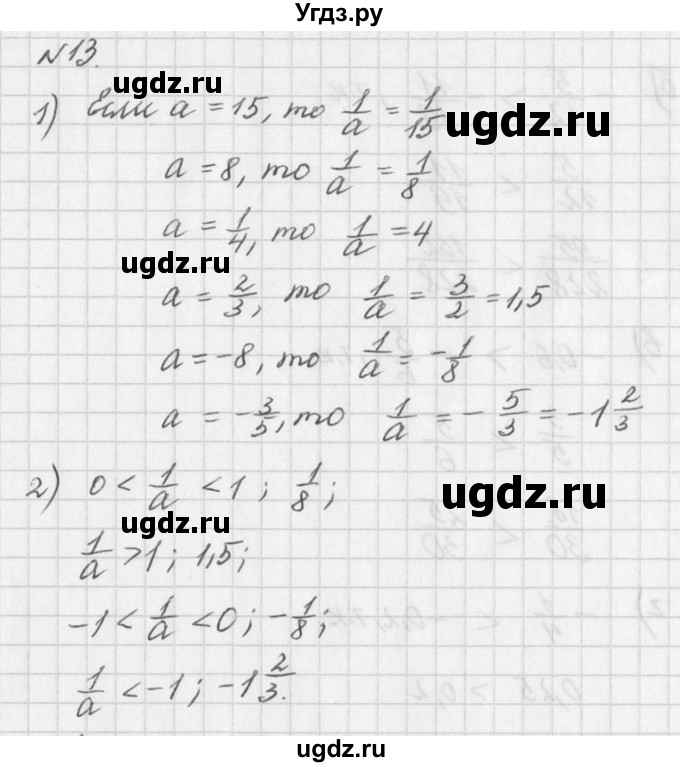 Угдз.ру
N13.
ugdz.ru
1) Если a = 15, то 1/a = 1/15
ugdz.ru
a = 8, то 1/a = 1/8
a = 1/4, то 1/a = 4
ugdz.ru
a = 2/3, то 1/a = 3/2 = 1,5
a = -8, то 1/a = -1/8
a = -3/5, то 1/a = -5/3 = -1 2/3
2) 0 < 1/a < 1; 1/8;
ugdz.ru
ugdz.ru
1/a > 1; 1,5;
-1 < 1/a < 0; -1/8;
1/a < -1; -1 2/3.
ugdz.ru
ugdz.ru